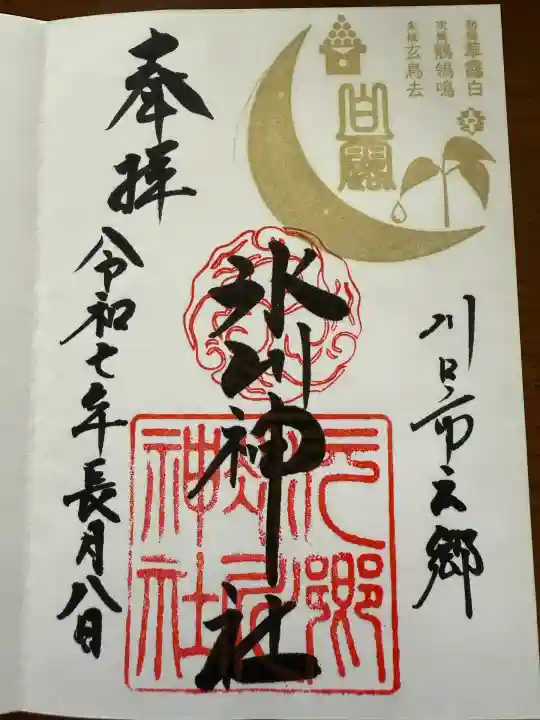 初候 草露白
次候 鶺鴒鳴
末候 玄鳥去
白露
川口市元郷
氷川神社
元郷
氷川
神社
奉拝
令和七年長月八日